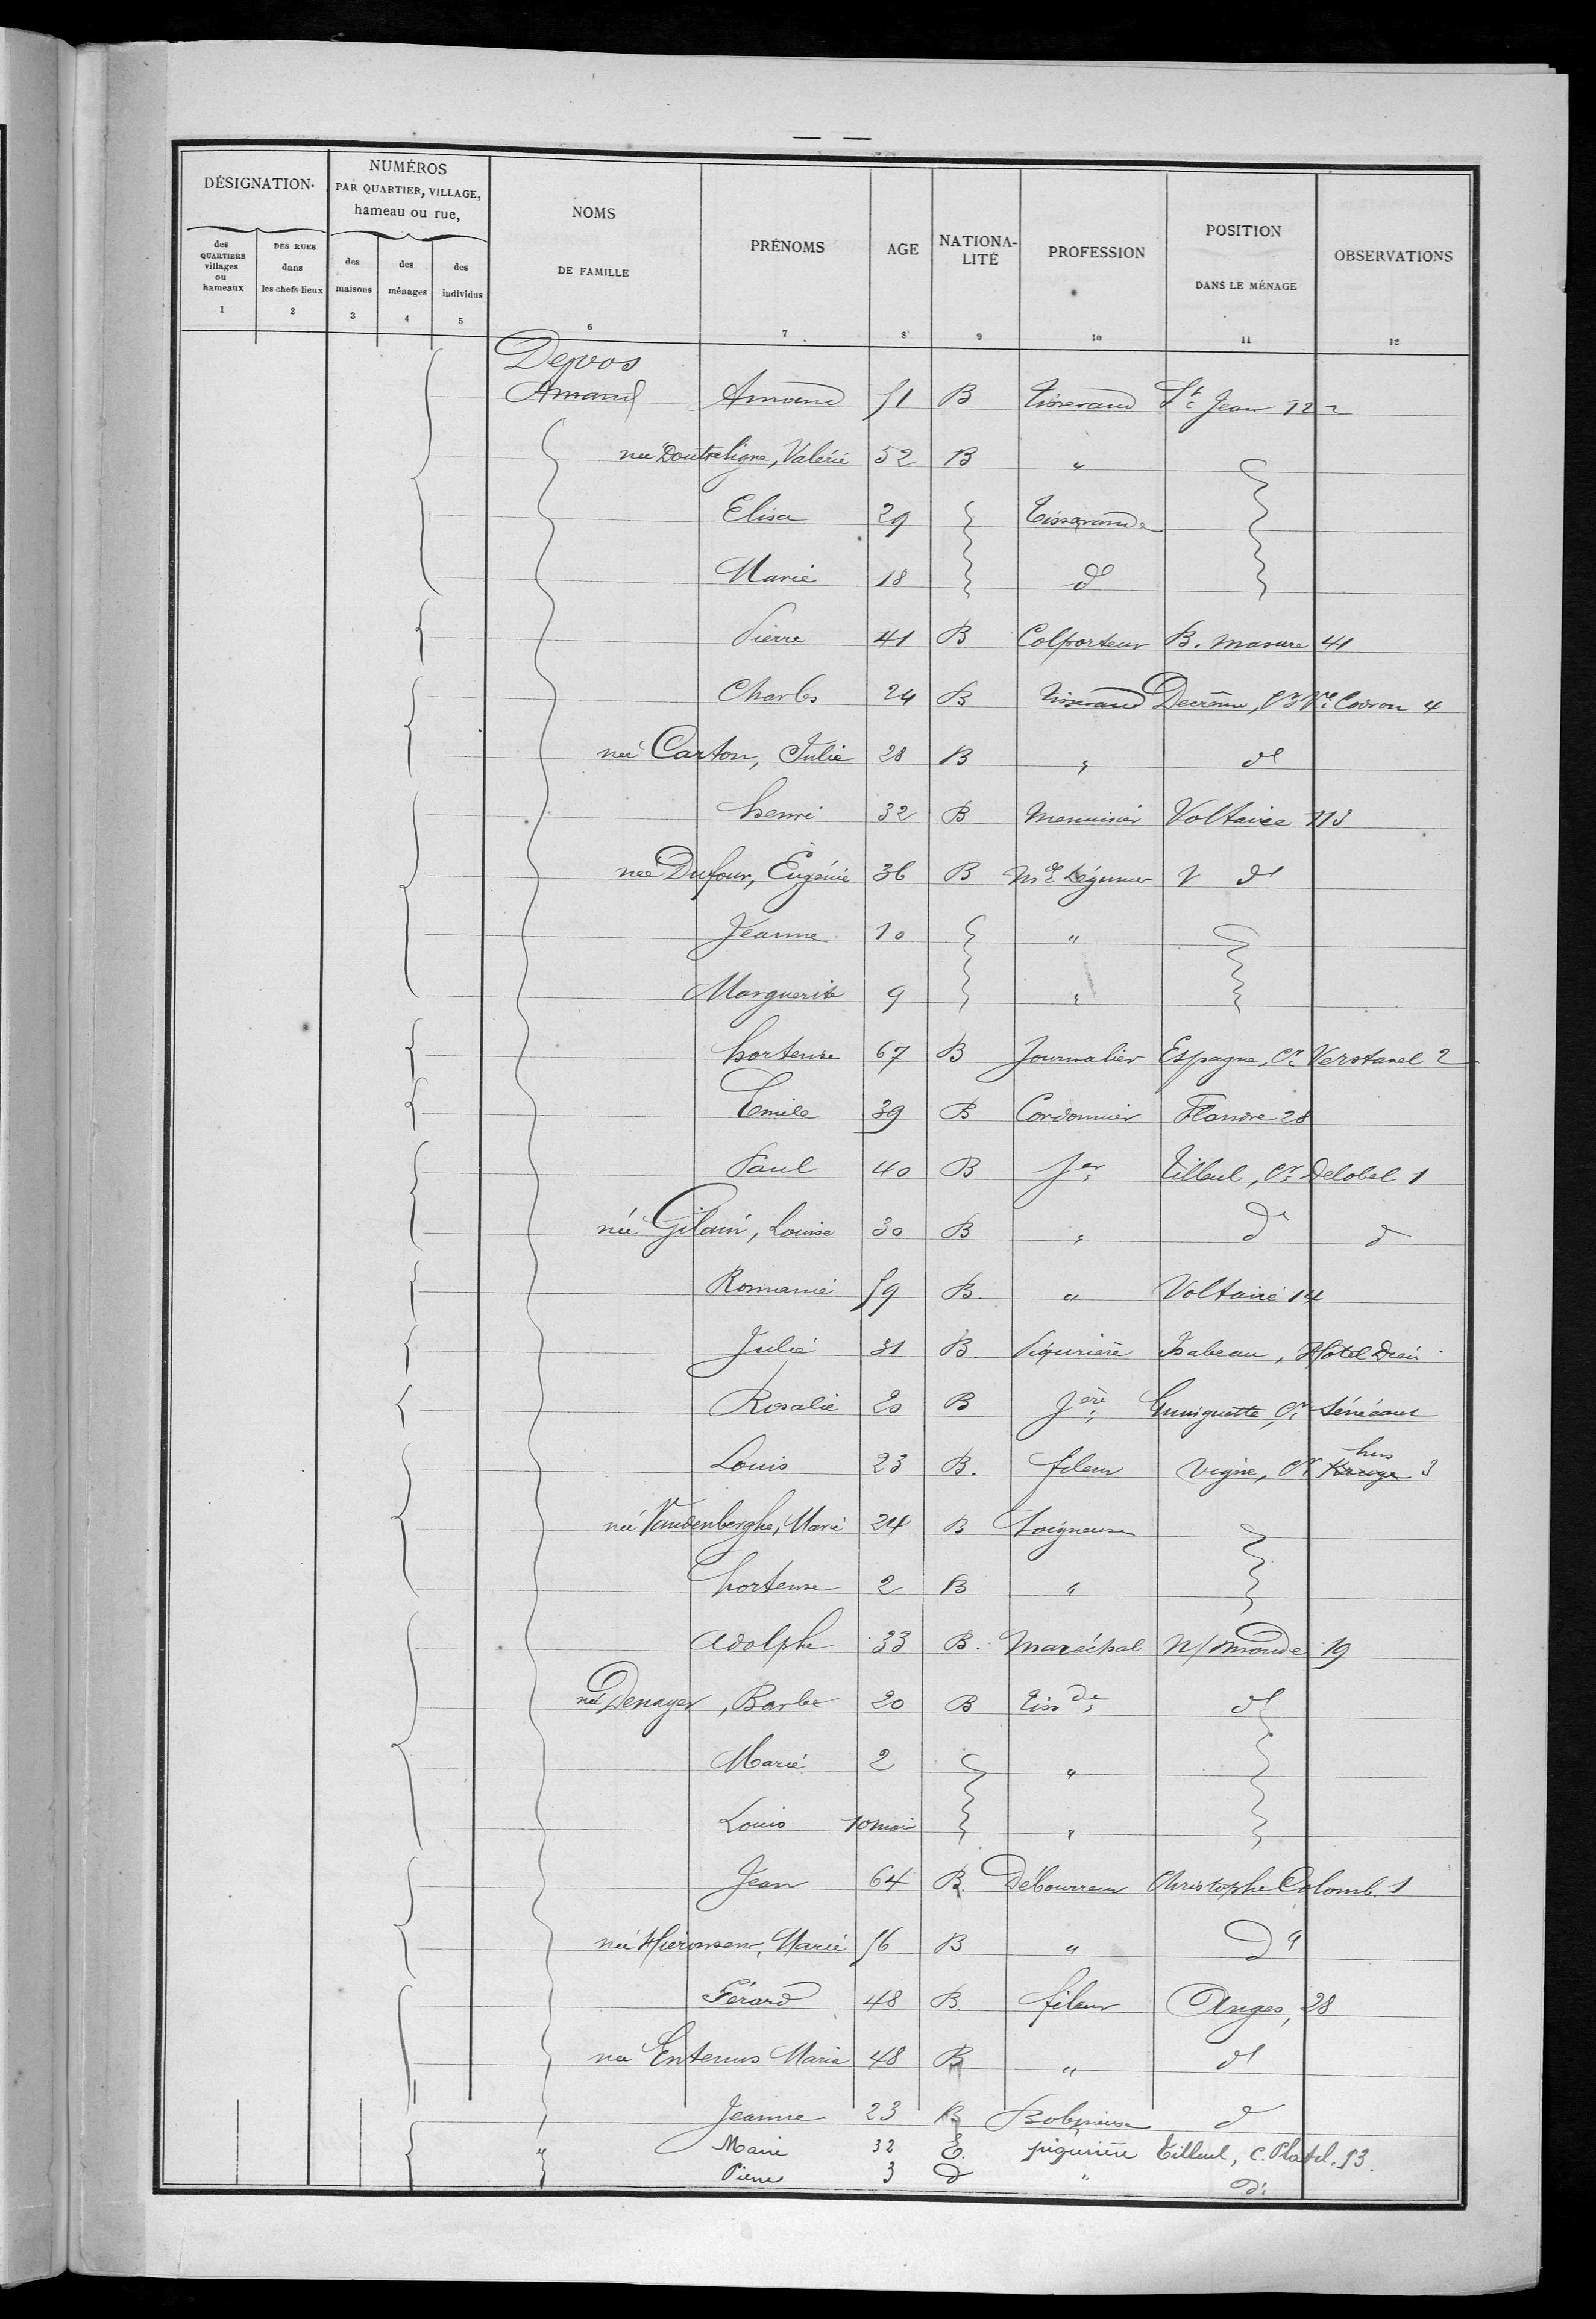 DÉSIGNATION
NUMÉROS
PAR QUARTIER, VILLAGE,
hameau ou rue,
NOMS
DE FAMILLE
PRÉNOMS
AGE
NATIONA-
LITÉ
PROFESSION
POSITION
DANS LE MÉNAGE
OBSERVATIONS
des
QUARTIERS
villages
ou
hameaux
DES RUES
dans
les chefs-lieux
des
maisons
des
ménages
des
individus
1 2 3 4 5 6 7 8 9 10 11 12
Devos
Amand Amand 51 B Tisserand St Jean 122
née Doutreligne, Valérie 52 B "
Elisa 29 Tisserande
Marie 18 d
Pierre 41 B Colporteur B. Masure 41
Charles 24 B Tisserand Decrême, Coiron 4
née Carton, Julie 28 B " d
henri 32 B Menuisier Voltaire 113
née Dufour, Eugénie 36 B Mde Légumes d
Jeanne 10 "
Marguerite 9 "
hortense 67 B Journalier Espagne, Cr Verstavel 2
Emile 39 B Cordonnier Flandre 28
Paul 40 B Jer Tilleul, Cr Delobel 1
née Gilain, Louise 30 B " d d
Romanie 59 B. " Voltaire 14
Julie 31 B. Piqurière Isabeau, Hotel Dieu
Rosalie 20 B Jère Guinguette, Cr Sénéçaut
Louis 23 B. fileur Vigne, Cr hus 3
née Vandenberghe, Marie 24 B Soigneuse
hortense 2 B "
Adolphe 33 B. Maréchal N/Monde 19
née Denayer, Barbe 20 B Tissde d
Marie 2 "
Louis 10 mois "
Jean 64 B Débourreur Christophe Colomb. 1
née Marie 56 B " d
Gérard 48 B. fileur Anges, 28
née Maria 48 B " d
Jeanne 23 B Bobineuse d
" Marie 32 piqurière Tilleul, C. Platel, 13.
Pierre 3 d " d: